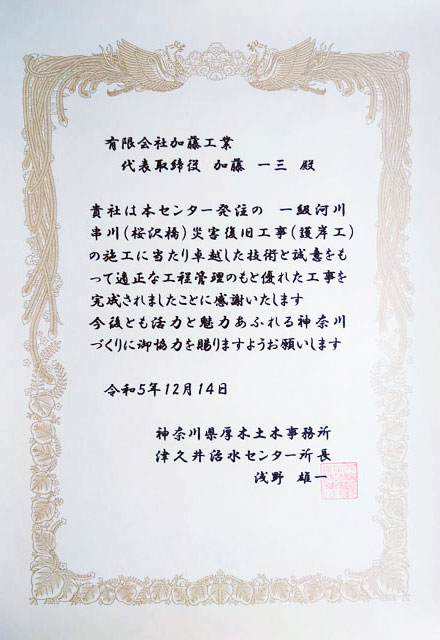 有限会社加藤工業
代表取締役 加藤 一三 殿
貴社は本センター発注の 一級河川
串川(桜沢橋)災害復旧工事(護岸工)
の施工に当たり卓越した技術と誠意をも
って適正な工程管理のもと優れた工事を
完成されましたことに感謝いたします
今後とも活力と魅力あふれる神奈川
づくりに御協力を賜りますようお願いします
令和5年12月14日
神奈川県厚木土木事務所
津久井治水センター所長
浅野 雄一